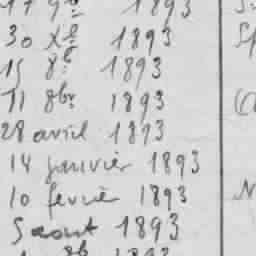 17 9bre 1893
30 Xbre 1893
15 8bre 1893
11 8bre 1893
28 avril 1893
14 janvier 1893
10 fevrier 1893
5 aout 1893
8b 1893